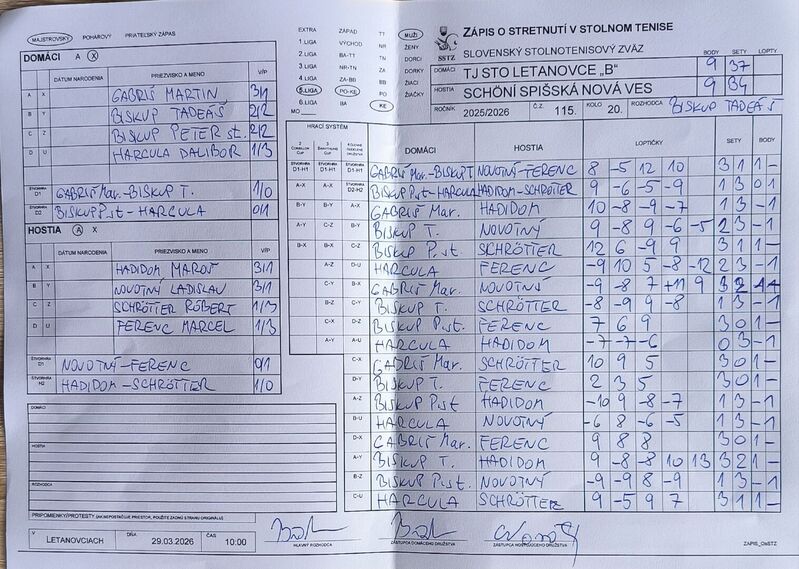 MAJSTROVSKÝ POHÁROVÝ PRIATEĽSKÝ ZÁPAS
DOMÁCI A X
DÁTUM NARODENIA PRIEZVISKO A MENO V/P
A X GABRIŠ MARTIN 3/1
B Y BISKUP TADEÁŠ 2/2
C Z BISKUP PETER st. 2/2
D U HARCULA DALIBOR 1/3
ŠTVORHRA D1 GABRIŠ Mar.-BISKUP T. 1/0
ŠTVORHRA D2 BISKUP P.st - HARCULA 0/1
HOSTIA A X
DÁTUM NARODENIA PRIEZVISKO A MENO V/P
A X HADIDOM MAROŠ 3/1
B Y NOVOTNÝ LADISLAV 3/1
C Z SCHRÖTTER RÓBERT 1/3
D U FERENC MARCEL 1/3
ŠTVORHRA H1 NOVOTNÝ-FERENC 0/1
ŠTVORHRA H2 HADIDOM-SCHRÖTTER 1/0
DOMÁCI
HOSTIA
ROZHODCA
PRIPOMIENKY/PROTESTY (AK NEPOSTAČUJE PRIESTOR, POUŽITE ZADNÚ STRANU ORIGINÁLU)
V LETANOVCIACH DŇA 29.03.2026 ČAS 10:00
EXTRA ZÁPAD TT
1.LIGA VÝCHOD NR
2.LIGA BA-TT TN
3.LIGA NR-TN ZA
4.LIGA ZA-BB BB
5.LIGA PO-KE PO
6.LIGA BA KE
MO
MUŽI
ŽENY
DORCI
DORKY
ŽIACI
ŽIAČKY
SSTZ
ZÁPIS O STRETNUTÍ V STOLNOM TENISE
SLOVENSKÝ STOLNOTENISOVÝ ZVÄZ
BODY SETY LOPTY
DOMÁCI TJ STO LETANOVCE „B" 9 37
HOSTIA SCHÖNI SPIŠSKÁ NOVÁ VES 9 34
ROČNÍK 2025/2026 Č.Z. 115. KOLO 20. ROZHODCA BISKUP TADEÁŠ
HRACÍ SYSTÉM
DOMÁCI HOSTIA LOPTIČKY SETY BODY
D1-H1 D1-H1 D1-H1 GABRIŠ Mar.-BISKUP T NOVOTNÝ-FERENC 8 -5 12 10 3 1 1 -
A-X A-X D2-H2 BISKUP P.st-HARCULA HADIDOM-SCHRÖTTER 9 -6 -5 -9 1 3 0 1
B-Y B-Y A-X GABRIŠ Mar. HADIDOM 10 -8 -9 -7 1 3 - 1
A-Y C-Z B-Y BISKUP T. NOVOTNÝ -9 8 9 -6 -5 2 3 - 1
B-X B-X C-Z BISKUP P.st SCHRÖTTER 12 6 -9 9 3 1 1 -
A-Z D-U HARCULA FERENC -9 10 5 -8 -12 2 3 - 1
C-Y B-X GABRIŠ Mar. NOVOTNÝ -9 -8 7 11 9 3 2 1 -
B-Z C-Y BISKUP T. SCHRÖTTER -8 -9 9 -8 1 3 - 1
C-X D-Z BISKUP P.st. FERENC 7 6 9 3 0 1 -
A-Y A-U HARCULA HADIDOM -7 -7 -6 0 3 - 1
C-X GABRIŠ Mar. SCHRÖTTER 10 9 5 3 0 1 -
D-Y BISKUP T. FERENC 2 3 5 3 0 1 -
A-Z BISKUP P.st HADIDOM -10 9 -8 -7 1 3 - 1
B-U HARCULA NOVOTNÝ -6 8 -6 -5 1 3 - 1
D-X GABRIŠ Mar. FERENC 9 8 8 3 0 1 -
A-Y BISKUP T. HADIDOM 9 -8 -8 10 13 3 2 1 -
B-Z BISKUP P.st. NOVOTNÝ -9 -9 8 -9 1 3 - 1
C-U HARCULA SCHRÖTTER 9 -5 9 7 3 1 1 -
HLAVNÝ ROZHODCA ZÁSTUPCA DOMÁCEHO DRUŽSTVA ZÁSTUPCA HOSŤUJÚCEHO DRUŽSTVA ZÁPIS_OsSTZ